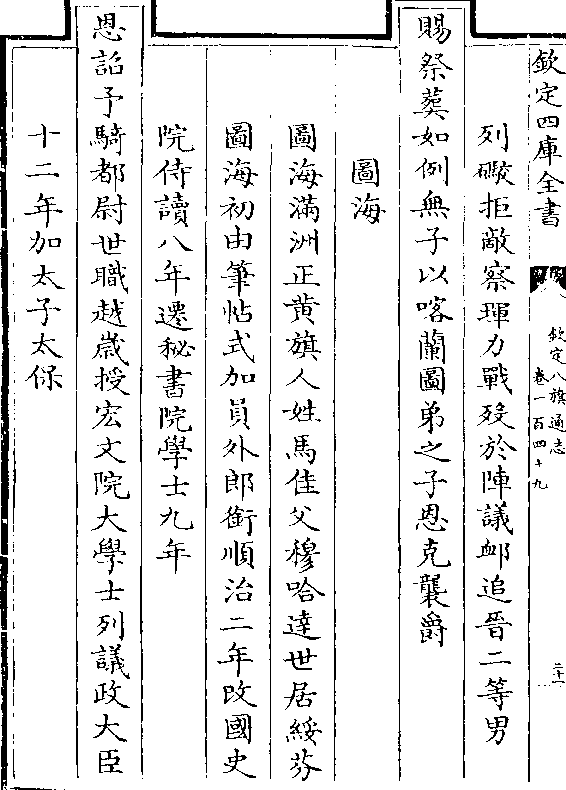 欽定四庫全書
欽定八旗通志
卷一百四十九
二十一
列礮拒敵察琿力戰歿於陣議䘏追晉二等男
賜祭葬如例無子以喀蘭圖弟之子恩克襲爵
圖海
圖海滿洲正黄旗人姓馬佳父穆哈達世居綏芬
圖海初由筆帖式加員外郎銜順治二年改國史
院侍讀八年遷秘書院學士九年
恩詔予騎都尉世職越嵗授宏文院大學士列議政大臣
十二年加太子太保